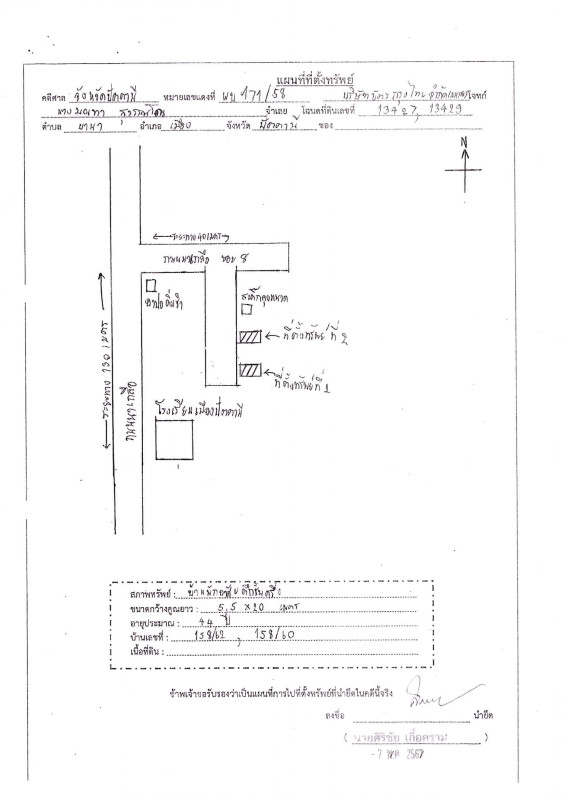 แผนที่ที่ตั้งทรัพย์
คดีศาล จังหวัดปัตตานี หมายเลขแดงที่ ผบ 171/58 โจทก์
จำเลย โฉนดที่ดินเลขที่ 13427, 13429
ตำบล อำเภอ เมือง จังหวัด ปัตตานี ของ
N
ระยะทาง 40 เมตร
ถนนนาเกลือ ซอย 8
สเต็กคุณหมวด
ที่ตั้งทรัพย์ที่ 2
ที่ตั้งทรัพย์ที่ 1
ระยะทาง 130 เมตร
ถนนนาเกลือ
โรงเรียนเมืองปัตตานี
สภาพทรัพย์ : บ้านพักอาศัยตึกชั้นครึ่ง
ขนาดกว้างคูณยาว : 5,5 x 20 เมตร
อายุประมาณ : 44 ปี
บ้านเลขที่ : 158/62 , 158/60
เนื้อที่ดิน :
ข้าพเจ้าขอรับรองว่าเป็นแผนที่การไปที่ตั้งทรัพย์ที่นำยึดในคดีนี้จริง
ลงชื่อ นำยึด
( นายศิริชัย เกื้อคราม )
-7 พค 2567